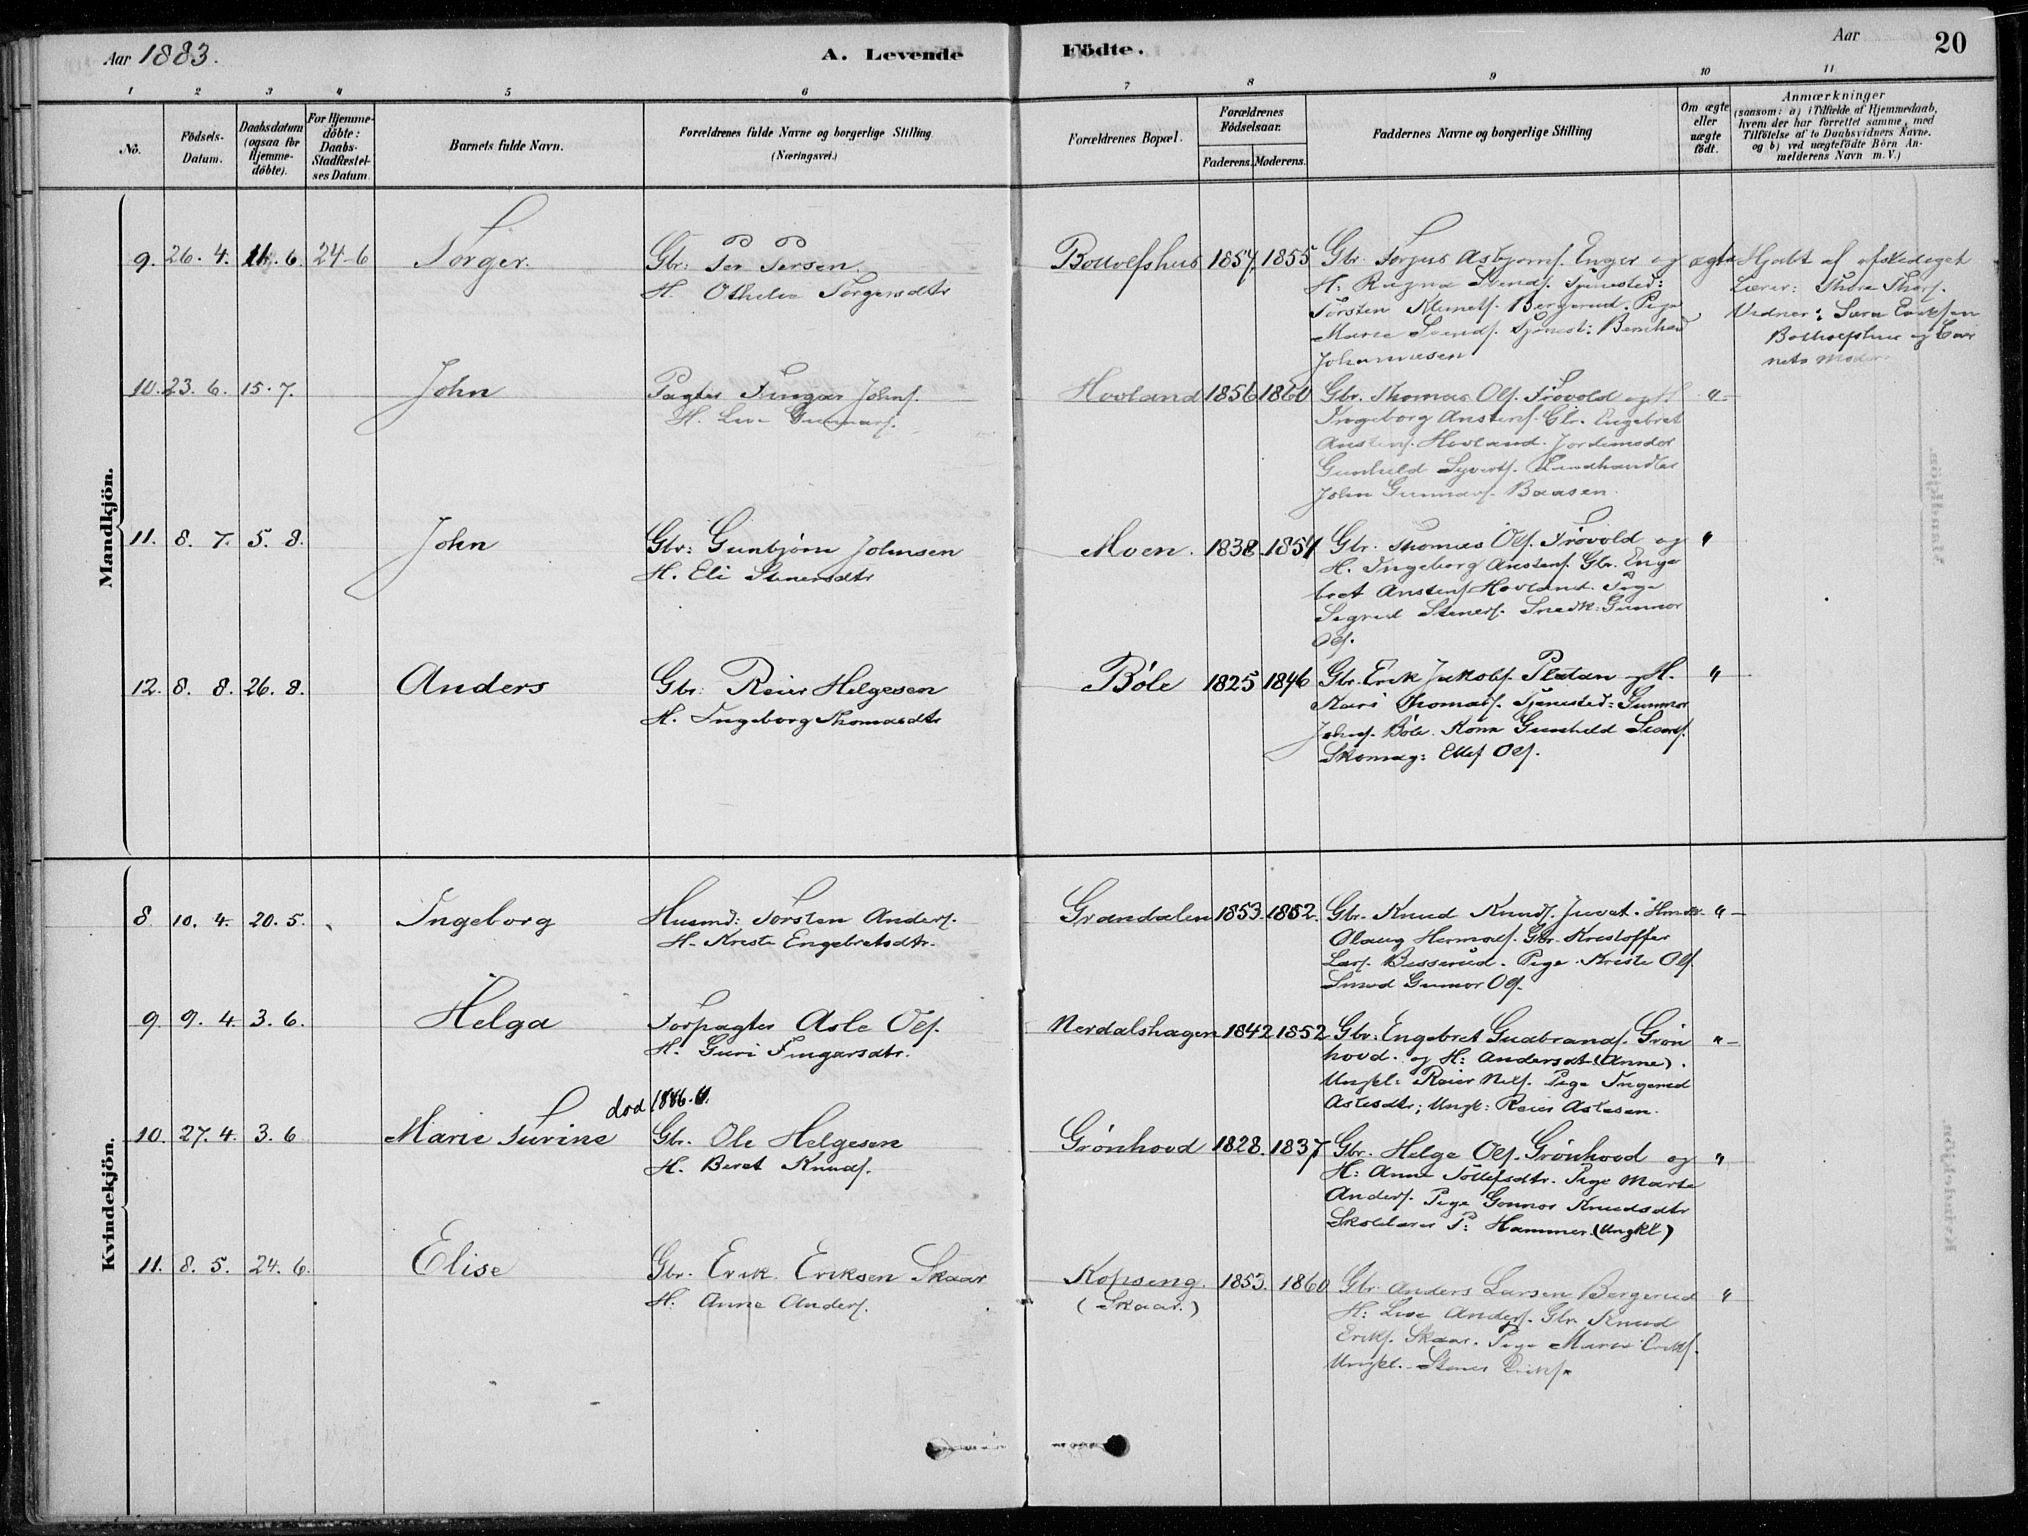 Aar 1883.
A. Levende
Födte.
Aar
20
1 2 3 4 5 6 7 8 9 10 11
No.
Födsels-
Datum.
Daabsdatum
(ogsaa for
Hjemme-
döbte).
For Hjemme-
döbte:
Daabs-
Stadfæstel-
ses Datum
Barnets fulde Navn.
Forældrenes fulde Navne og borgerlige Stilling.
(Næringsvei.)
Forældrenes Bopæl.
Forældrenes
Födselsaar.
Faderens. Moderens.
Faddernes Navne og borgerlige Stilling
Om ægte
eller
uægte
födt.
Anmærkninger
(saasom: a) i Tilfælde af Hjemmedaab,
hvem der har forrettet samme, med
Tilföielse af to Daabsvidners Navne.
og b) ved uægtefödte Börn An-
melderens Navn m. V.)
Mandkjön.
9. 26. 4. 11. 6. 24-6
Torger.
Gbr: Per Persen.
H. Othelie Torgersdtr
Bottolfshus 1857. 1855
Gbr. Torjus Asbjørns. Enger og
H: Ragna Svends. Tjenested:
Torsten Klemets. Bergerud. Pige
Marie Svends. Tjenest: Bernhard
Johannesen
ægte
Hjdbt af afskediget
Lærer: Thore Thors.
Vidner: Sara Eriksen
Botholfshus og Bar
nets Moder.
10. 23. 6. 15. 7.
John
Pagter Fingar Johns.
H. Live Gunnars.
Hovland 1856 1860
Gbr. Thomas Ols. Trøvold og H.
Ingeborg Anstens. Gbr. Engebret
Anstens. Hovland. Jordemoder
Gunhild Syverts. Landhandler
John Gunnars. Baasen.
"
11. 8. 7. 5. 8.
John
Gbr: Gunbjørn Johnsen
H. Eli Stenersdtr
Moen. 1838. 1854
Gbr. Thomas Ols. Trøvold og
H. Ingeborg Anstens. Gbr. Enge
bret Anstens. Hovland. Pige
Sigrid Steners. Snedk: Gunnor
Ols.
"
12. 8. 8. 26. 8.
Anders
Gbr: Reier Helgesen
H. Ingeborg Thomasdtr
Bøle 1825 1846
Gbr. Erik Jakobs. Platan og H.
Kari Thomas. Tjenested: Gunnor
Johns. Bøle. Kone Gunhild
Skomag: Ellef Ols.
"
Kvindekjön.
8 10. 4. 20. 5.
Ingeborg
Husmd: Torsten Anders.
H. Kristi Engebretsdtr.
Grøndalen 1853. 1852.
Gbr. Knud Knuds. Juvet. Hmdk.
Olaug Hermods. Gbr. Kristoffer
Lars. Besserud. Pige. Kriste Ols.
Smed Gunnor Ols.
"
9. 9. 4. 3. 6.
Helga
Forpagter Asle Ols.
H. Guri Fingarsdtr.
Nerdalshagen 1842 1852
Gbr: Engebret Gudbrands. Grøn
hovd. og H: Andersdt. (Anne).
Ungkl: Reier Nils. Pige Ingerid
Aslesdtr; Ungk: Reier Aslesen.
"
10. 27. 4. 3. 6
Marie Turine
død 1886.
Gbr. Ole Helgesen
H. Beret Knuds.
Grønhovd 1828. 1837
Gbr. Helge Ols. Grønhovd og
H: Anne Tollefsdtr. Pige Marte
Anders. Pige Gonnor Knudsdtr
Skolelærer P: Hammer. (Ungkl)
"
11. 8. 5. 24. 6.
Elise
Gbr. Erik Eriksen Skaar
H. Anne Anders.
Kopseng. 1853. 1860
(Skaar.)
Gbr. Anders Larsen Bergerud
H: Live Anders. Gbr. Knud
Eriks. Skaar. Pige Marie Eriks.
Ungkl. Stener Eriks.
"